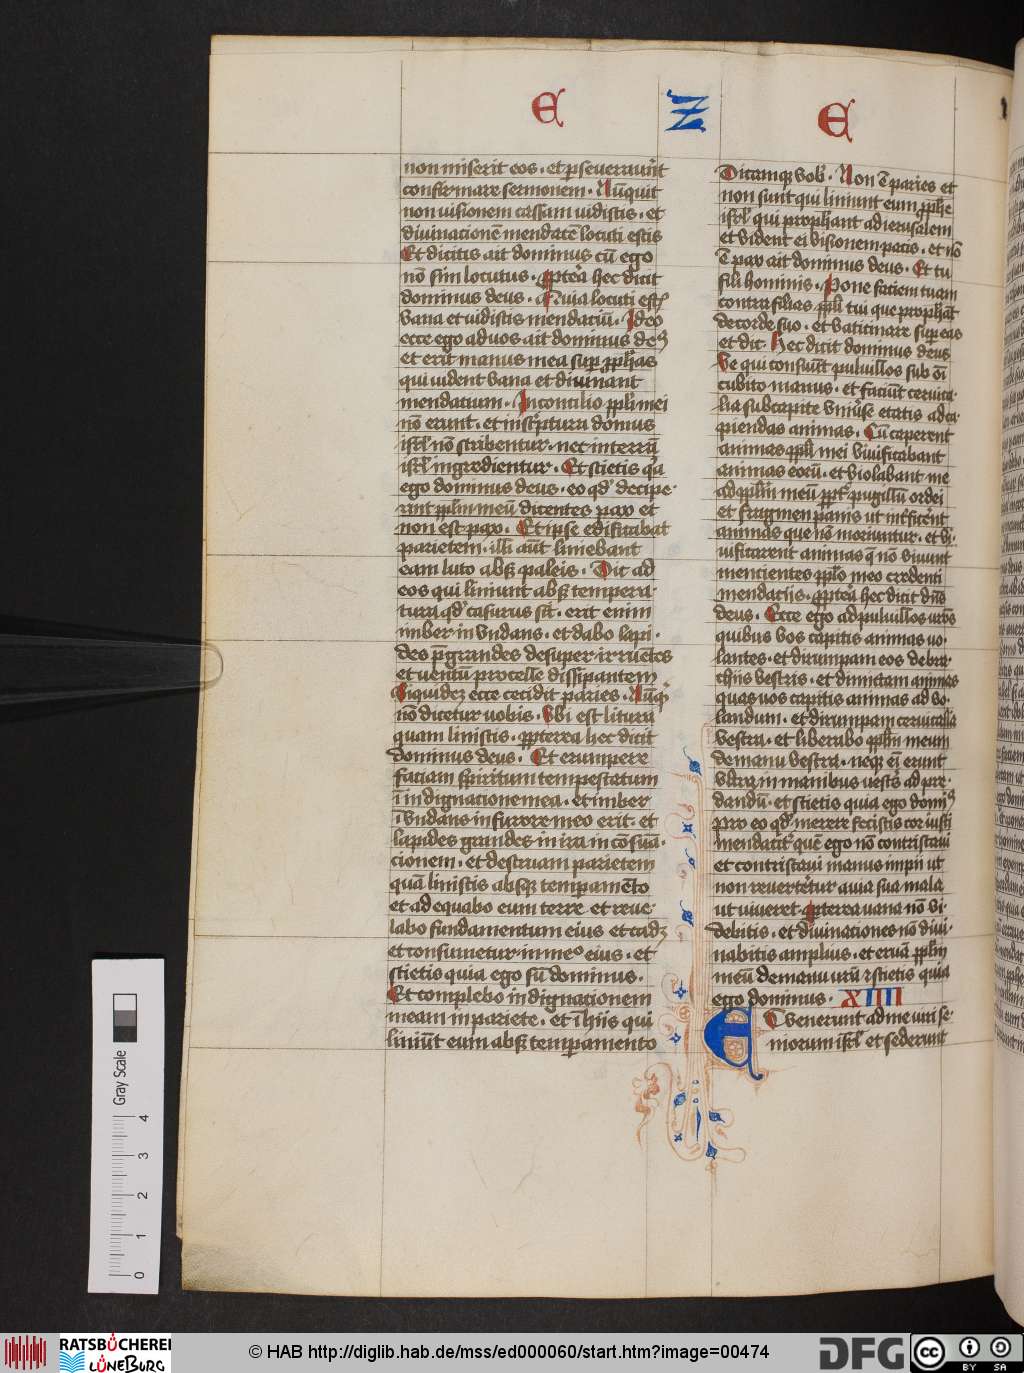 E Z E
non miserit eos · et ꝑseueraueȓt
confirmare sermonem · Nūquit
non uisionem cassam uidistis · et
diuinacionē mendacē locuti estis
Et dicitis ait dominus cū ego
nō sim locutus · ꝓpteꝛ̄a hec dicit
dominus deus · Quia locuti estꝭ
vana et uidistis mendaciū · Ideo
ecce ego ad uos ait dominus deꝰ
et erit manus mea suꝑ ꝓpħas
qui uident vana et diuinant
mendacium · In concilio ppl̄i mei
nō erunt · et in scͥptura domus
isrl̄ nō scribentur · nec in terrā
isrl̄ ingredientur · Et scietis qͥa
ego dominus deus · eo qdʼ decipe·
rint ppl̄m meū dicentes pax et
non est pax · Et ipse edificabat
parietem · illi aūt liniebant
eam luto absꝫ paleis · Dic ad
eos qui liniunt absꝫ tempera
tura qdʼ casurus sit · erit enim
imber in vndans · et dabo lapi·
des p̄grandes desuper irruētes
et uentūm procelle dissipantem
Siquidez ecce cecidit paries · Nūqͥ
nō dicetur uobis · Vbi est litura
quam linistis · ꝓpterea hec dicit
dominus deus · Et erumpere
faciam spiritum tempestatum
ī indignacione mea · et imber
ī vndans in furore meo erit · et
lapides grandes in ira in cōsūa·
cionem · et destruam parietem
quā linistis absqꝫ temꝑamēto
et ad equabo eum terre et reue·
labo fundamentum eius et cadꝫ
et consumetur in meº eius · et
scietis quia ego sū dominus ·
Et complebo indignacionem
meam in pariete · et in hiis qui
liniūt eum absꝫ temꝑamento
Dicamqꝫ vob̾ · Non ē paries et
non sunt qui liniunt eum ꝓpħe
isrl̄ qui prophant ad ierusalem
et vident ei visionem pacis · et nō
ē pax ait dominus deus · Et tu
fili hominis · Pone faciem tuam
contra filias ppl̄i tui que prophāt
de corde suo · et vaticinare suꝑ eas
et dic · Hec dicit dominus deus
Ve qui consuūt puluillos sub oī
cubito manus · et faciūt ceruica·
lia sub capite vniuᷤse etatis ad ca·
piendas animas · Cū caperent
animas ppl̄i mei viuificabant
animas eorū · et violabant me
ad ppl̄m meū ꝓptʼ pugillū ordei
et fragmen panis ut int̾ficeꝛ̄nt
animas que nō moriuntur · et vi·
uificarent animas q̄ nō viuunt
mencientes ppl̄o meo credenti
mendaciis · ꝓpteꝛ̄a hec dicit dn̄s
deus · Ecce ego ad puluillos vrōs
quibus vos capitis animas uo·
lantes · et dirumpam eos de bra·
chiis vestris · et dimictam animas
quas uos capitis animas ad vo·
landum · et dirumpam ceruicalia
vestra · et liberabo ppl̄m meum
de manu vestra · neqꝫ eī erunt
vltra in manibus uestꝛ̄s ad pre·
dandū · et scietis quia ego dominꝰ
Pro eo qdʼ merere fecistis cor iusti
mendacitʼ quē ego nō contristaui
et contristaui manus impii ut
non reuerteꝛ̄tur a uia sua mala
ut viueret · ꝓpterea uana nō vi·
debitis · et diuinaciones nō diui·
nabitis amplius · et eruā ppl̄m
meū de manu urā ⁊ scietis quia
ego dominus · XIIII
ET venerunt ad me uiri se·
niorum isrl̄ et sederunt
Gray Scale
0 1 2 3 4
RATSBÜCHEREI
LÜNEBURG
© HAB http://diglib.hab.de/mss/ed000060/start.htm?image=00474
DFG
cc BY SA